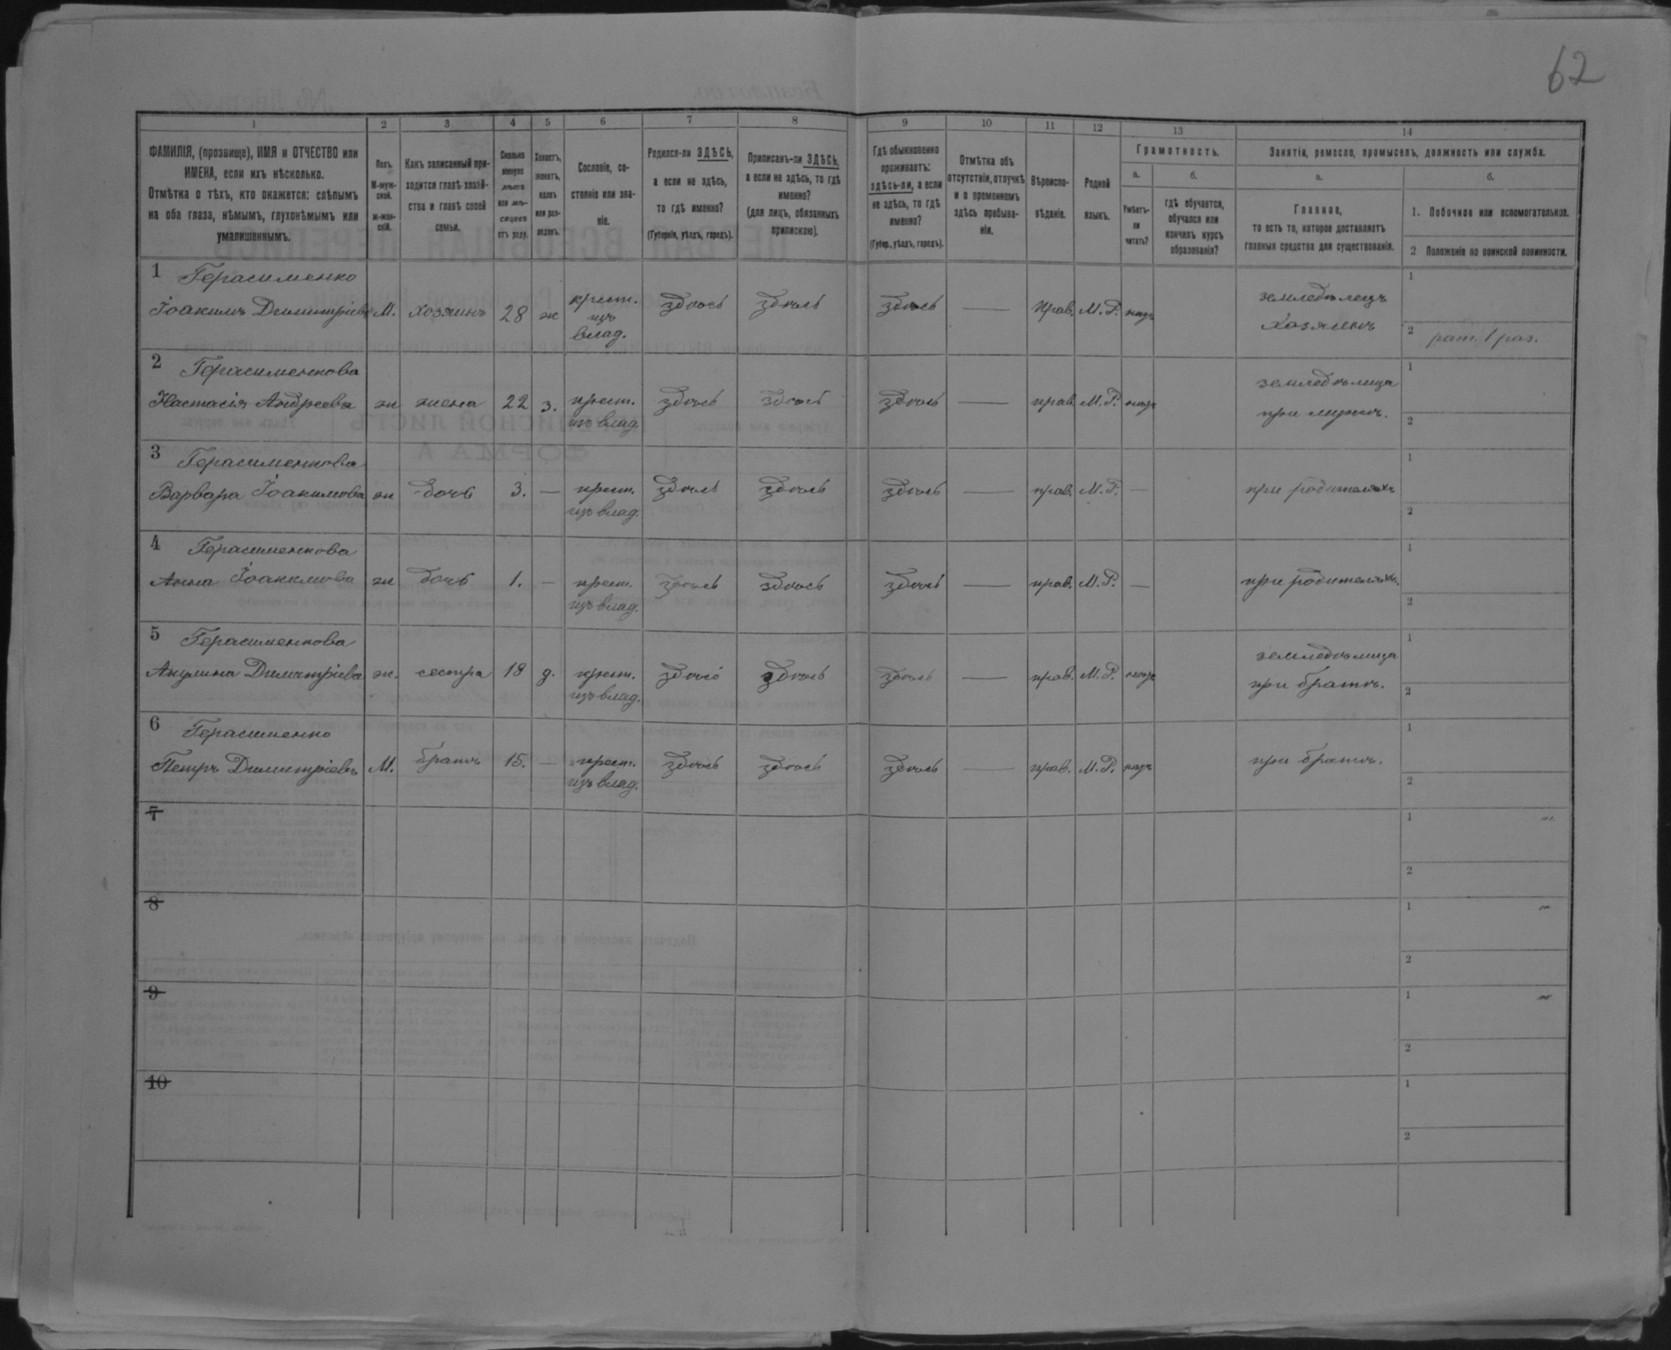 62
1
2
3
4
5
6
7
8
9
10
11
12
13
14
ФАМИЛІЯ, (прозвище), ИМЯ и ОТЧЕСТВО или
ИМЕНА, если ихъ нѣсколько.
Отмѣтка о тѣхъ, кто окажется: слѣпымъ
на оба глаза, нѣмымъ, глухонѣмымъ или
умалишеннымъ.
Полъ.
М-муж-
ской.
ж-жен-
скій.
Какъ записанный при-
ходится главѣ хозяй-
ства и главѣ своей
семьи.
Сколько
минуло
лѣтъ
или мѣ-
сяцевъ
отъ роду.
Холостъ,
женатъ,
вдовъ
или раз-
веденъ.
Сословіе, со-
стояніе или зва-
ніе.
Родился-ли ЗДѢСЬ,
а если не здѣсь,
то гдѣ именно?
(Губернія, уѣздъ, городъ).
Приписанъ-ли ЗДѢСЬ,
а если не здѣсь, то гдѣ
именно?
(для лицъ, обязанныхъ
припискою).
Гдѣ обыкновенно
проживаетъ:
здѣсь-ли, а если
не здѣсь, то гдѣ
именно?
(Губер., уѣздъ, городъ).
Отмѣтка объ
отсутствіи, отлучкѣ
и о временномъ
здѣсь пребыва-
ніи.
Вѣроиспо-
вѣданіе.
Родной
языкъ.
Грамотность.
а.
Умѣетъ-
ли
читать?
б.
гдѣ обучается,
обучался или
кончилъ курсъ
образованія?
Занятіе, ремесло, промыселъ, должность или служба.
а.
Главное,
то есть то, которое доставляетъ
главныя средства для существованія.
б.
1. Побочное или вспомогательное.
2 Положеніе по воинской повинности.
1 Герасименко
Іоакимъ Димитріевъ М. хозяинъ 28 ж крест. изъ влад. здѣсь здѣсь здѣсь — Прав. М.Р. нѣтъ земледѣлецъ хозяинъ 1
2 рат. 1 раз.
2 Герасименкова
Настасія Андреева ж жена 22 з. крест. изъ влад. здѣсь здѣсь здѣсь — прав. М.Р. нѣтъ земледѣлица при мужѣ. 1
2
3 Герасименкова
Варвара Іоакимова ж дочь 3. — крест. изъ влад. здѣсь здѣсь здѣсь — прав. М.Р. — при родителяхъ 1
2
4 Герасименкова
Анна Іоакимова ж дочь 1. — крест. изъ влад. здѣсь здѣсь здѣсь — прав. М.Р. — при родителяхъ. 1
2
5 Герасименкова
Акулина Димитріева ж. сестра 18 д. крест. изъ влад. здѣсь здѣсь здѣсь — прав. М.Р. нѣтъ земледѣлица при братѣ. 1
2
6 Герасименко
Петръ Димитріевъ М. братъ 15. — крест. изъ влад. здѣсь здѣсь здѣсь — прав. М.Р. нѣтъ при братѣ. 1
2
7 1
2
8 1
2
9 1
2
10 1
2